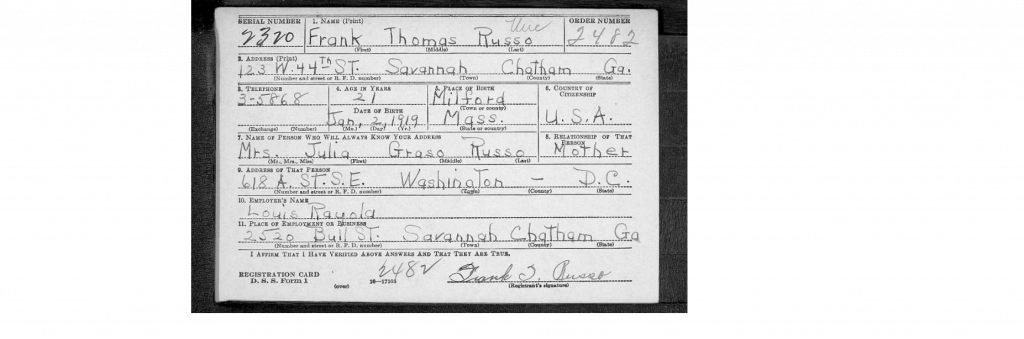 SERIAL NUMBER 1. NAME (Print) ORDER NUMBER
2320 Frank Thomas Russo 2482
(First) (Middle) (Last)
2. ADDRESS (Print)
123 W. 44Th ST. Savannah Chatham Ga.
(Number and street or R. F. D. number) (Town) (County) (State)
3. TELEPHONE 4. AGE IN YEARS 5. PLACE OF BIRTH 6. COUNTRY OF CITIZENSHIP
3-5868 21 Milford
(Town or county)
DATE OF BIRTH
Jan, 2, 1919 Mass. U.S.A.
(Exchange) (Number) (Mo.) (Day) (Yr.) (State or country)
7. NAME OF PERSON WHO WILL ALWAYS KNOW YOUR ADDRESS 8. RELATIONSHIP OF THAT PERSON
Mrs. Julia Graso Russo Mother
(Mr., Mrs., Miss) (First) (Middle) (Last)
9. ADDRESS OF THAT PERSON
618 A. ST. S.E. Washington - D.C.
(Number and street or R. F. D. number) (Town) (County) (State)
10. EMPLOYER'S NAME
Louis Rayola
11. PLACE OF EMPLOYMENT OR BUSINESS
2520 Bull ST. Savannah Chatham Ga
(Number and street or R. F. D. number) (Town) (County) (State)
I AFFIRM THAT I HAVE VERIFIED ABOVE ANSWERS AND THAT THEY ARE TRUE.
REGISTRATION CARD 2482 Frank T. Russo
D. S. S. Form 1 (over) 16-17105 (Registrant's signature)